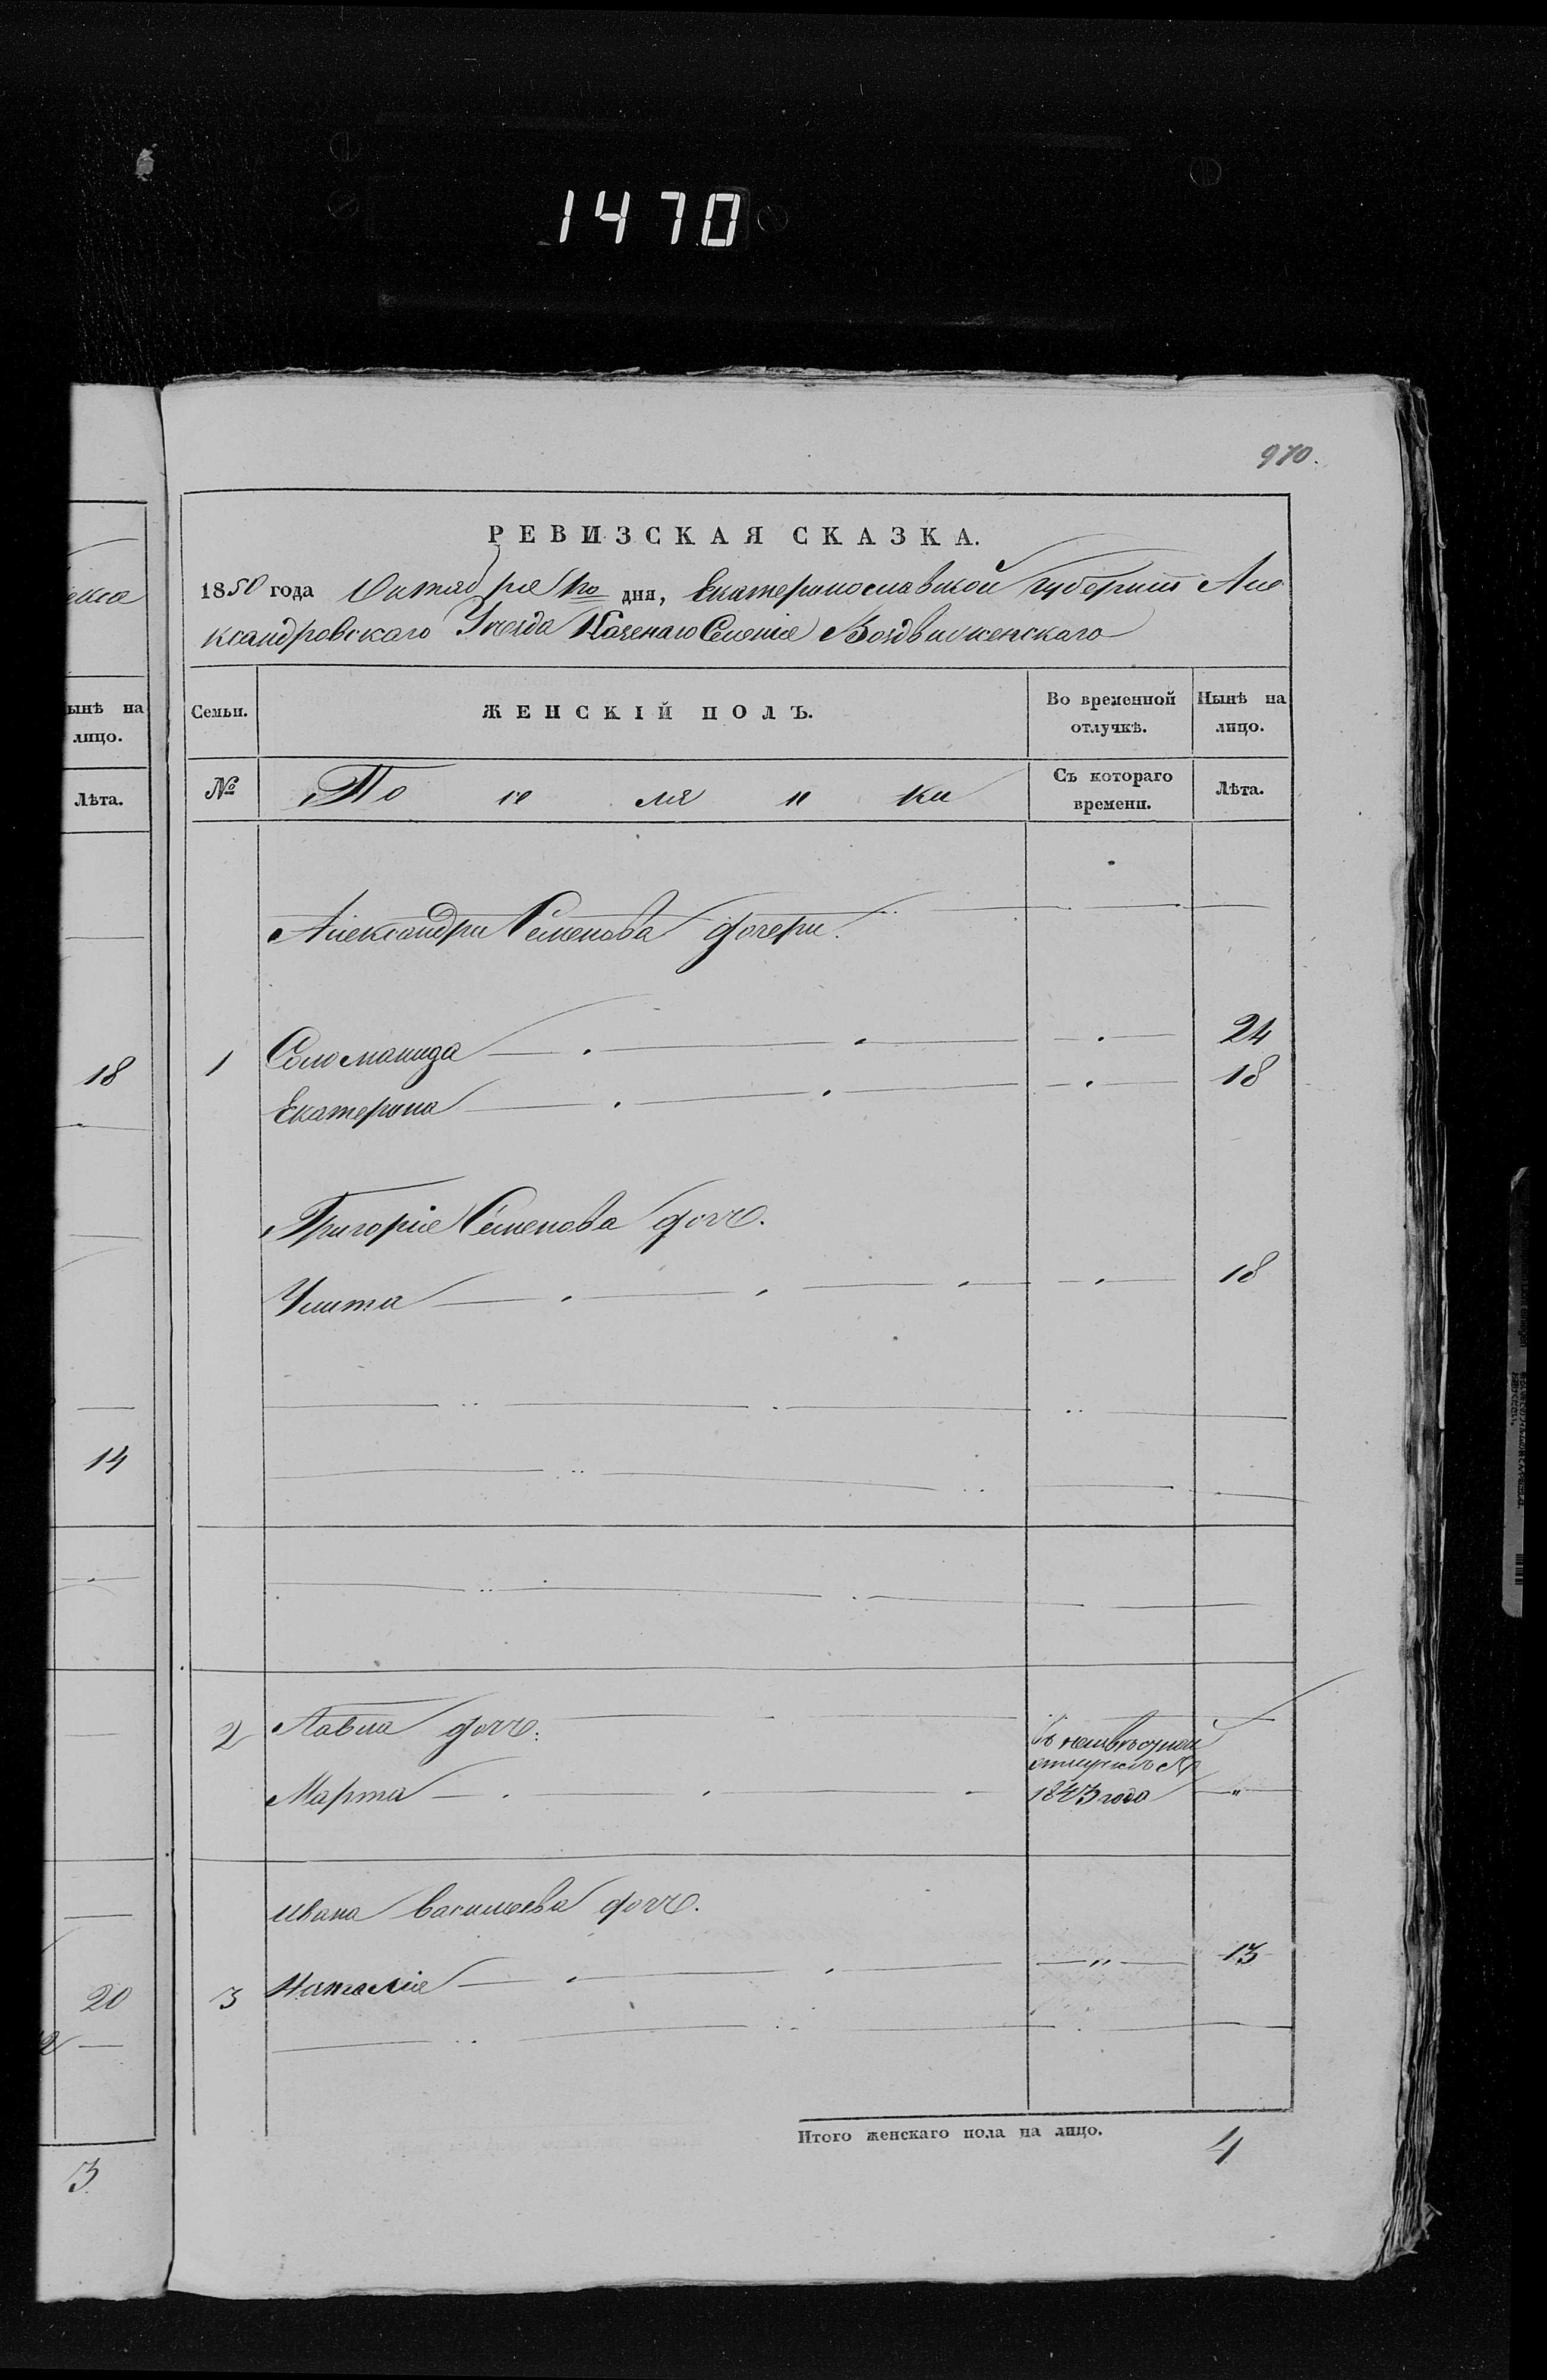 1470
970.
РЕВИЗСКАЯ СКАЗКА.
1850 года Октября 1го дня, Екатеринославской Губернии Але
ксандровского Уезда Казенаго Селенія Воздвиженскаго
ынѣ на
лицо.
Лѣта.
18
14
20
3
Семьи.
ЖЕНСКІЙ ПОЛЪ.
Во временной
отлучкѣ.
Ныиѣ на
лицо.
№
Съ котораго
времени.
Лѣта.
Александра Семенова дочери.
1 Соломанида 24
Екатерина 18
Григорія Семенова дочь.
Улита 18
2 Павла дочь.
отлучкѣ съ
Марта 1843 года
Ивана Васильева дочь.
3 Наталія 13
Итого женскаго пола на лицо. 4